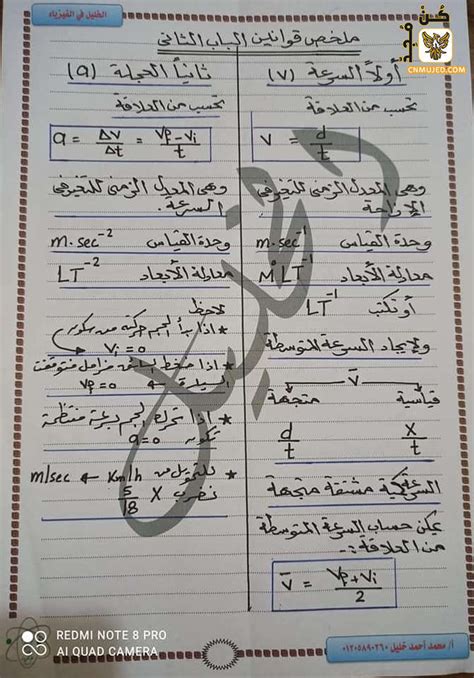 الخليل في الفيزياء
كن مجد
CNMUJED.COM
ملخص قوانين الباب الثانى
أولاً السرعة (v)
تحسب من العلاقة
v = d/t
وهى المعدل الزمنى للتغير فى
الإزاحة
وحدة القياس m.sec⁻¹
معادلة الأبعاد M⁰LT⁻¹
أو تكتب LT⁻¹
ولإيجاد السرعة المتوسطة
v̄
قياسية متجهة
d/t X/t
السرعة كمية مشتقة متجهة
يمكن حساب السرعة المتوسطة
من العلاقة :-
v̄ = (Vf + Vi)/2
ثانياً العجلة (a)
تحسب من العلاقة
a = Δv/Δt = (Vf - Vi)/t
وهى المعدل الزمنى للتغير فى
السرعة.
وحدة القياس m.sec⁻²
معادلة الأبعاد LT⁻²
لاحظ
* اذا بدأ الجسم حركته من سكون
Vi = 0
* اذا ضغط السائق فرامل فتوقفت
السيارة ← Vf = 0
* اذا تحرك الجسم بسرعة منتظمة
تكون a = 0
* للتحويل من Km/h ← m/sec
نضرب X 5/18
الخليل
أ/ محمد أحمد خليل ٠١٢٠٥٨٩٠٢٦٠
REDMI NOTE 8 PRO
AI QUAD CAMERA